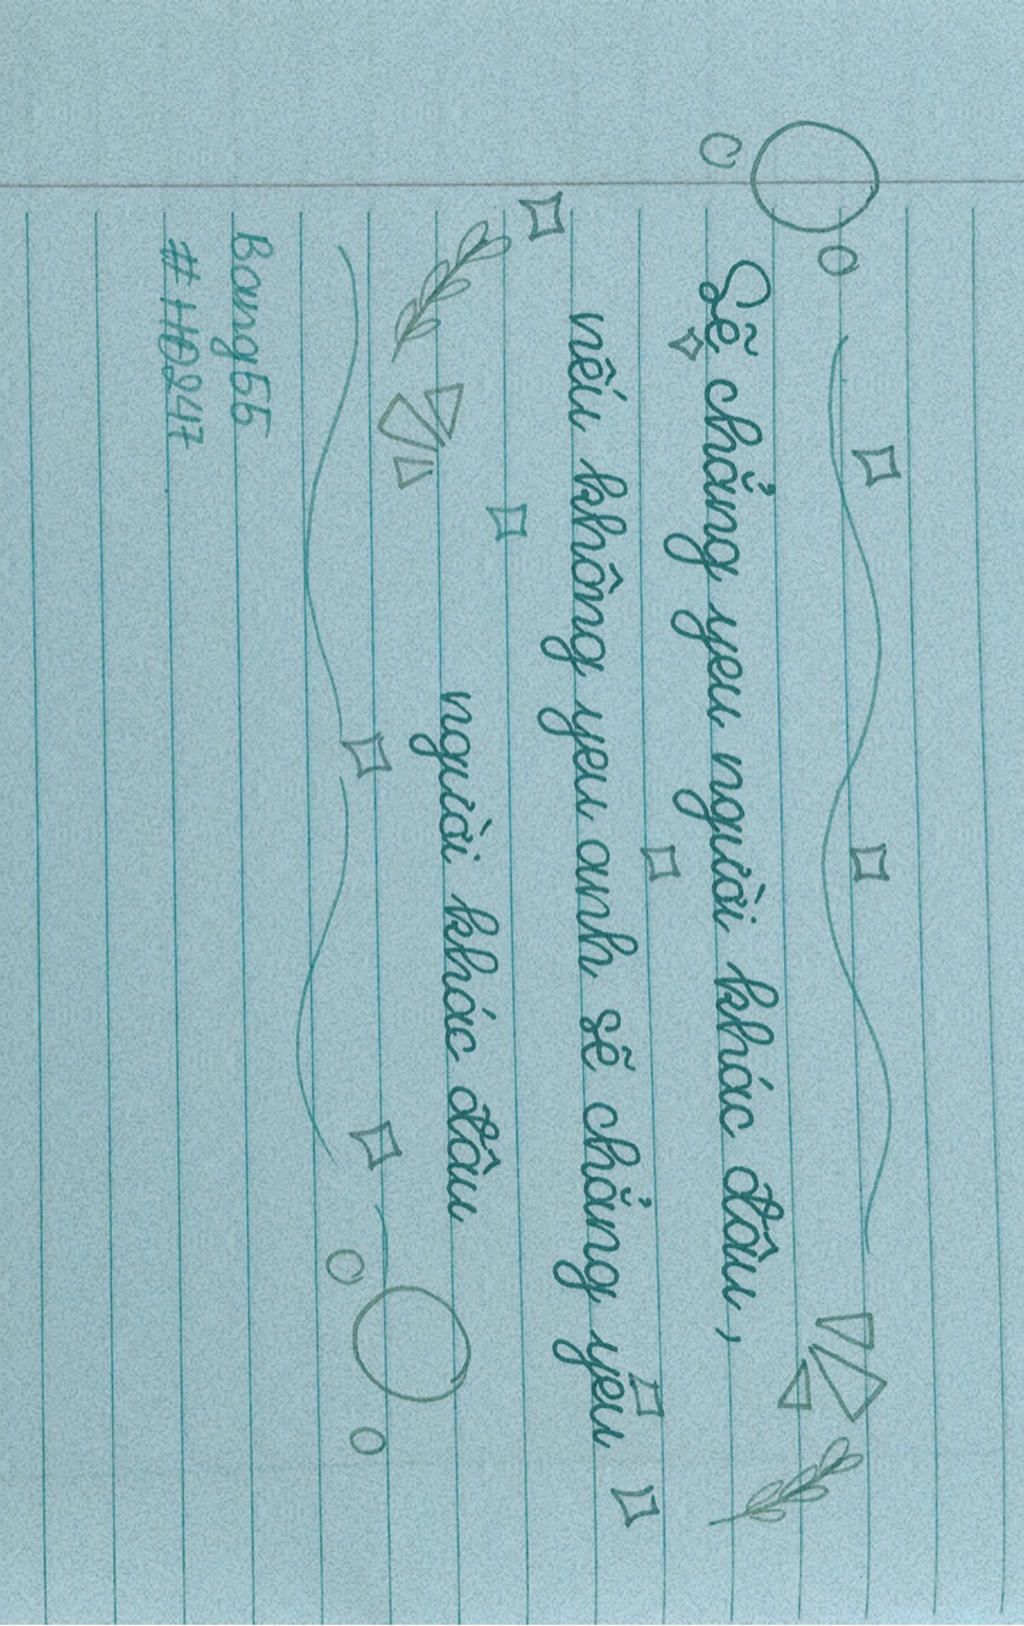 Sẽ chẳng yeu người khác đâu,
nếu không yeu anh sẽ chẳng yeu
người khác đâu
Bang55
#HD247